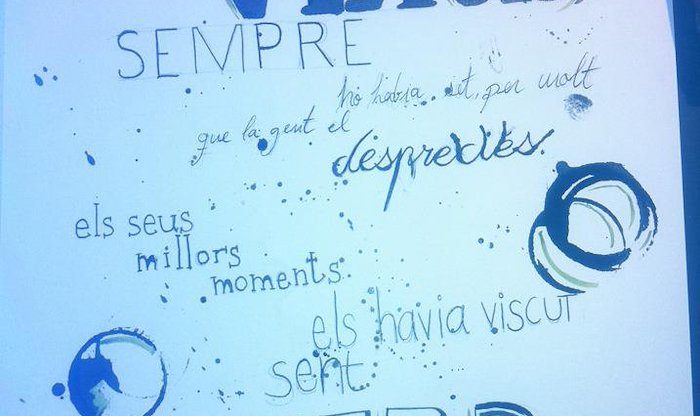 SEMPRE
ho havia set, per molt
que la gent el
despreciés.
els seus
millors
moments.
els havia viscut
sent